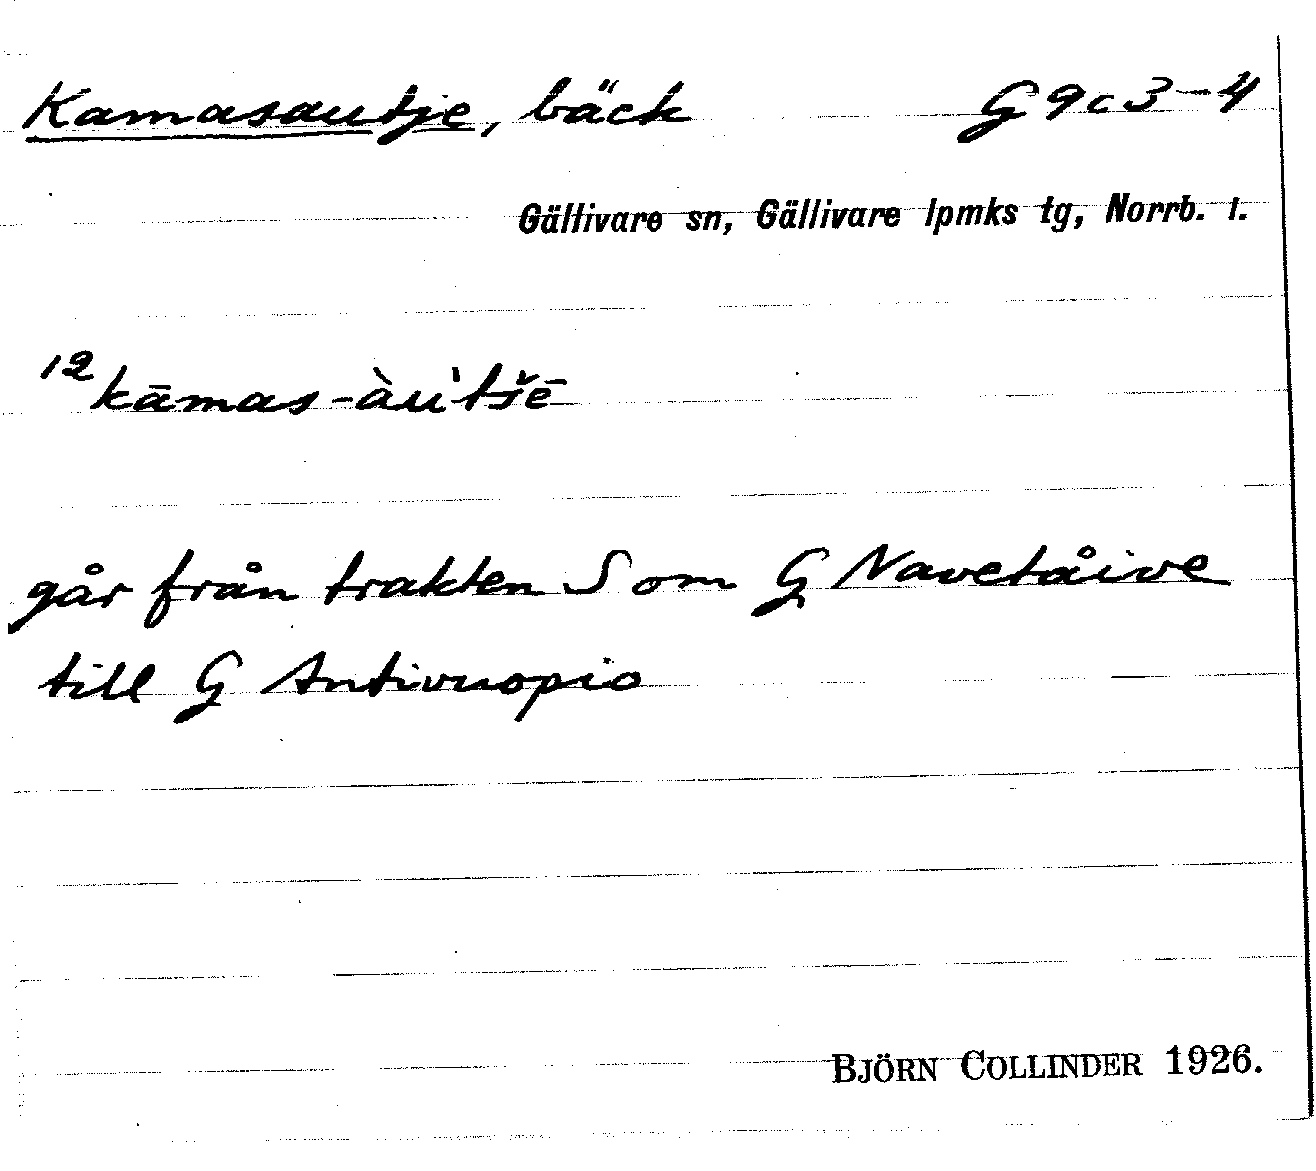 Kamasautje, bäck G 9c3-4
Gällivare sn, Gällivare lpmks tg, Norrb. l.
12 kāmas-àu̇̀tšē
går från trakten S om G Navetåive
till G Antivuopio
BJÖRN COLLINDER 1926.